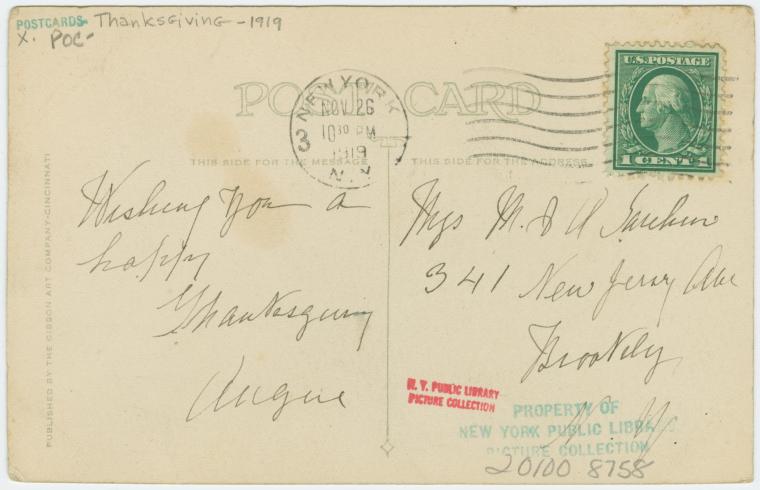 POSTCARDS- Thanksgiving - 1919
X. POC-
POST CARD
NEW YORK
NOV 26
10 30 PM
1919
N.Y.
3
U.S. POSTAGE
1 CENT 1
THIS SIDE FOR THE MESSAGE
THIS SIDE FOR THE ADDRESS
PUBLISHED BY THE GIBSON ART COMPANY-CINCINNATI
Wishing you a
happy
Thanksgiving
Angie
M. & A
341 New Jersey Ave
Brooklyn
N. Y.
N. Y. PUBLIC LIBRARY
PICTURE COLLECTION
PROPERTY OF
NEW YORK PUBLIC LIBRARY
PICTURE COLLECTION
20100 8758